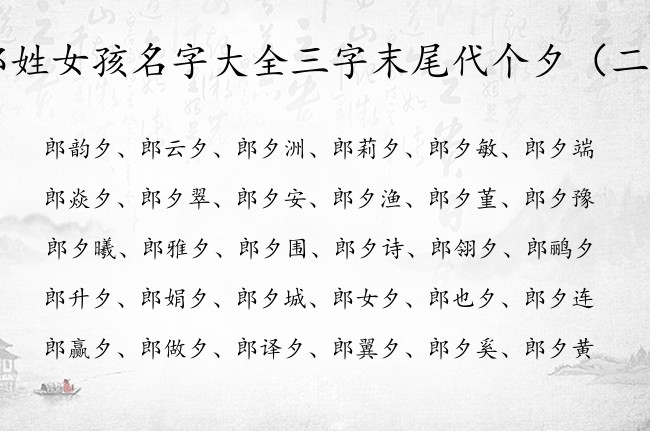 郎姓女孩名字大全三字末尾代个夕（二
郎韵夕、郎云夕、郎夕洲、郎莉夕、郎夕敏、郎夕端
郎焱夕、郎夕翠、郎夕安、郎夕渔、郎夕堇、郎夕豫
郎夕曦、郎雅夕、郎夕围、郎夕诗、郎翎夕、郎鹂夕
郎升夕、郎娟夕、郎夕城、郎女夕、郎也夕、郎夕连
郎赢夕、郎做夕、郎译夕、郎翼夕、郎夕奚、郎夕黄